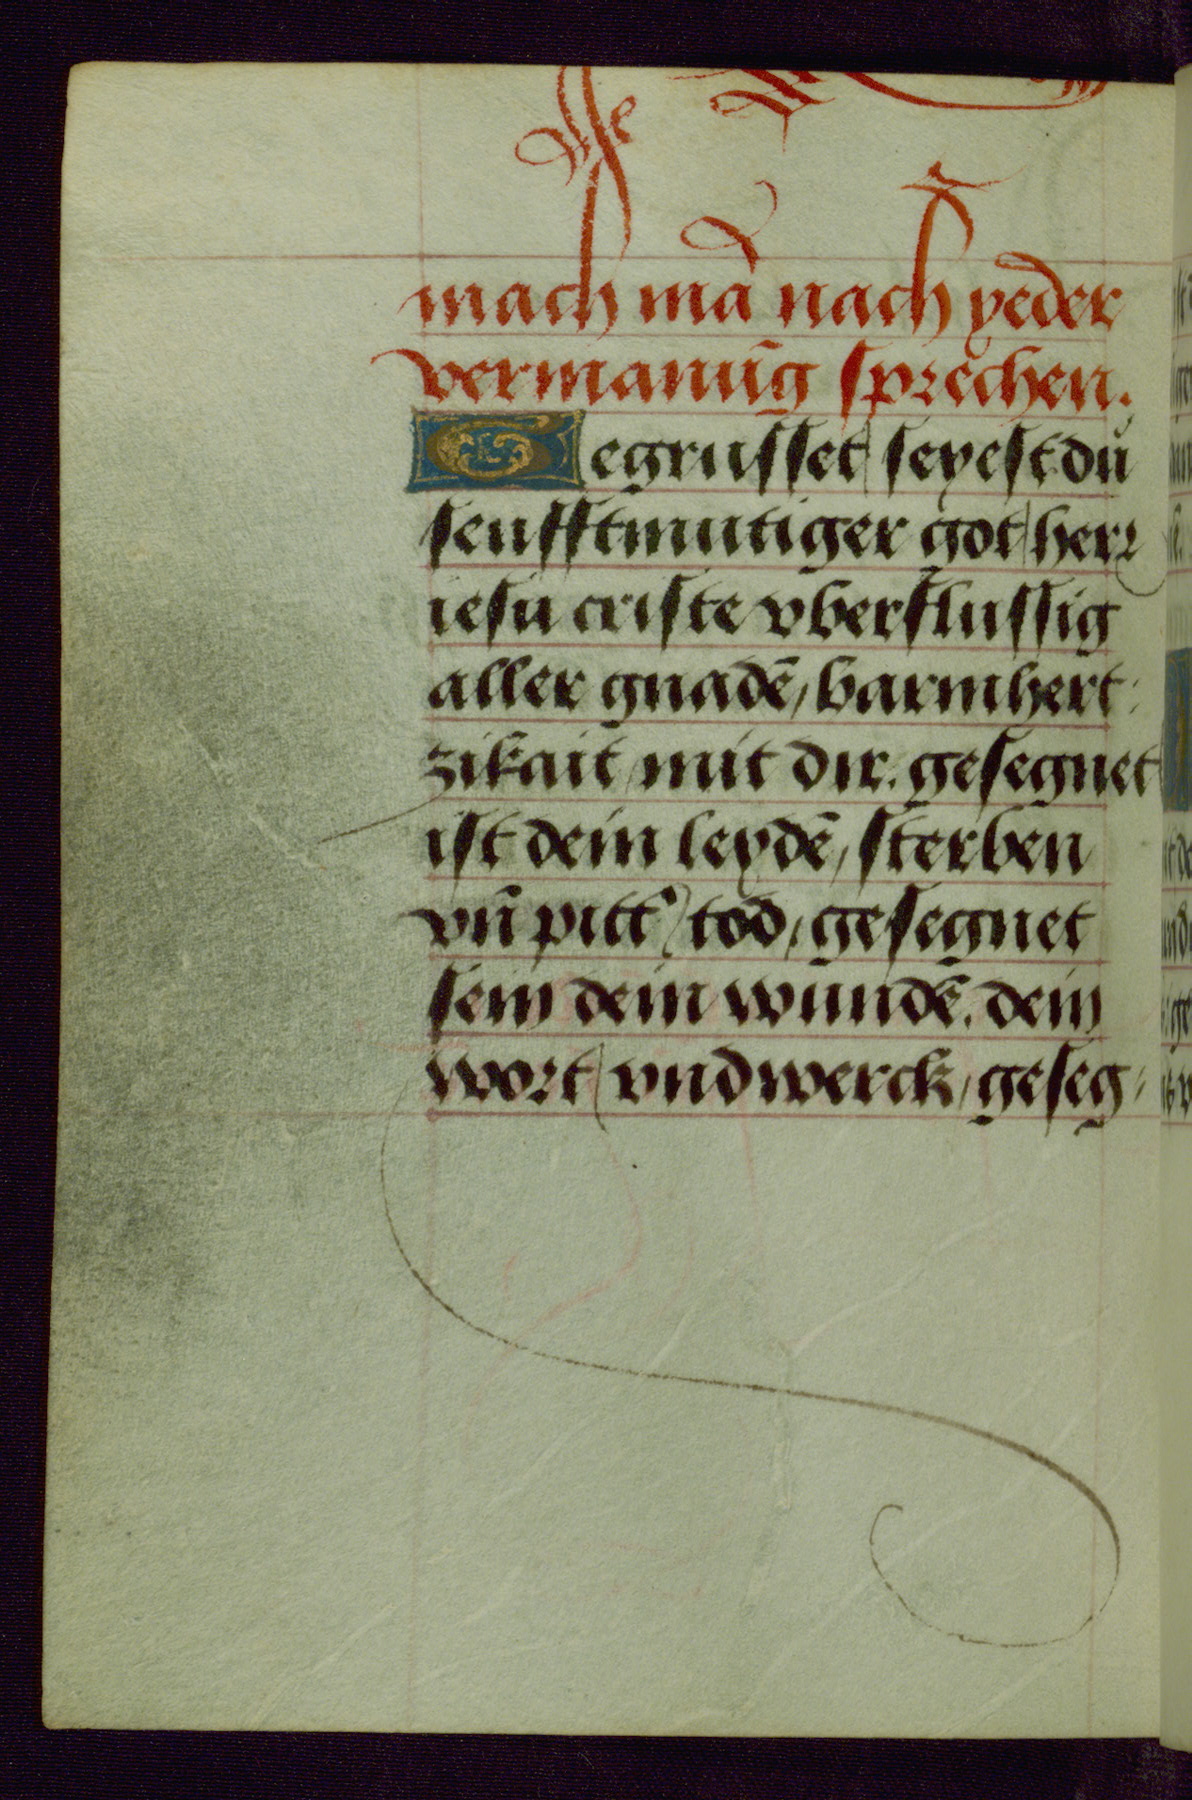 mach mā nach yeder
vermanūg sprechen.
Gegrusset seyest dů
senfftmutiger got herr
iesu criste vberflussig
aller gnadē, barmhert:
zikait mit dir. gesegnet
ist dein leydē, sterben
vn̄ pitt' tod, gesegnet
sein dein wundē. dein
wort vnd werck, geseg: